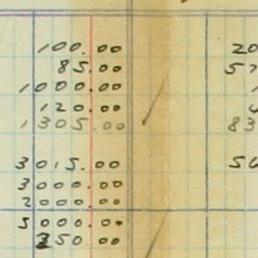 100.00 20
85.00 57
1000.00
120.00
1305.00 83
3015.00 50
3000.00
2000.00
5000.00
250.00